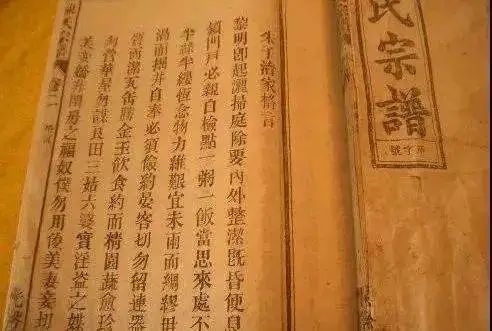 氏宗譜
字號
朱子治家格言
黎明即起灑掃庭除要內外整潔既昏便
鎖門戶必親自檢點一粥一飯當思來處不
半絲半縷恆念物力維艱宜未雨而綢繆毋
渴而掘井自奉必須儉約宴客切勿留連器
質而潔瓦缶勝金玉飲食約而精園蔬愈珍
勿營華屋勿謀良田三姑六婆實淫盜之媒
美妾嬌非閨房之福奴僕勿用俊美妻妾切